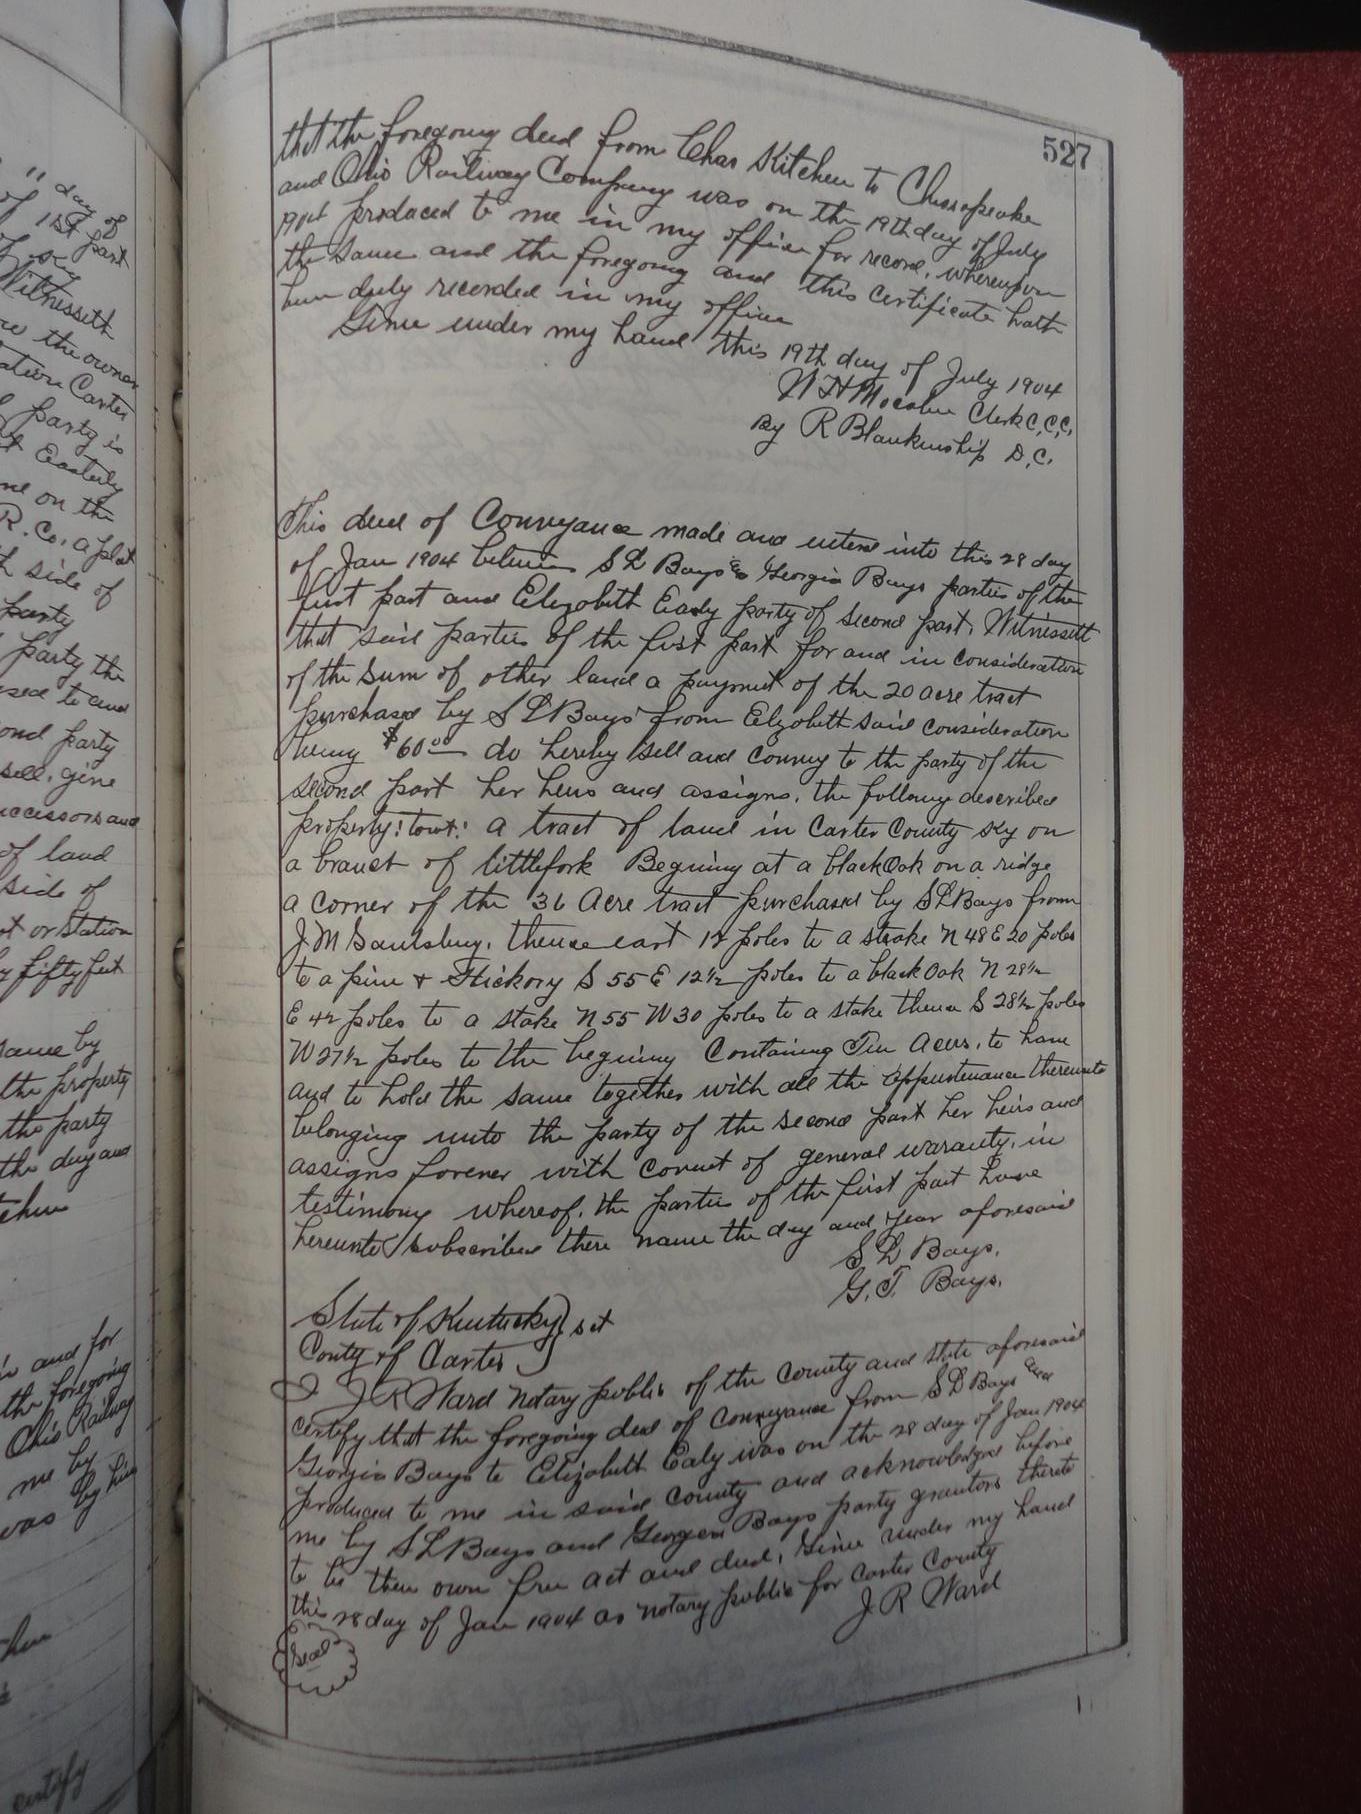 " day of
of 1st part
of Ky
Witnesseth
the owner
ation Carter
party is
t Easterly
me on the
R. Co. a plat
h side of
party
party the
sed to and
ond party
sell, give
uccessors and
of land
side of
ot or Station
y fifty feet
same by
the property
the party
the day and
tchen
and for
the foregoing
Ohio Railway
me by
was by him
certify
527
that the foregoing deed from Chas Kitchen to Chesapeake
and Ohio Railway Company was on the 19th day of July
1904 produced to me in my office for record, whereupon
the same and the foregoing and this certificate hath
been duly recorded in my office
Given under my hand this 19th day of July 1904
W H Mocabee Clerk C.C.C.
By R Blankenship D.C.
This deed of Conveyance made and entered into this 28 day
of Jan 1904 between S L Bays & Georgia Bays parties of the
first part and Elizobeth Ealy party of second part. Witnesseth
that said parties of the first part for and in consideration
of the Sum of other land a payment of the 20 acre tract
purchased by S L Bays from Elizobeth said consideration
being $60 00 do hereby sell and convey to the party of the
second part her heirs and assigns, the following described
property: towt: a tract of land in Carter County Ky on
a branch of littlefork Begining at a black Oak on a ridge
a corner of the 36 Acre tract purchased by S L Bays from
J M Saulsbury, thence east 12 poles to a stake N 48 E 20 poles
to a pine & Hickory S 55 E 12½ poles to a black Oak N 28½
E 42 poles to a stake N 55 W 30 poles to a stake thence S 28½ poles
W 27½ poles to the begining Containing Ten Acres, to have
and to hold the same together with all the appurtenance thereunto
belonging unto the party of the second part her heirs and
assigns forever with covnet of general waranty, in
testimony whereof, the parties of the first part have
hereunto subscribed there name the day and year aforesaid
S L Bays.
G. T. Bays.
State of Kentucky } sct
Conty of Carter
I J R Ward Notary public of the County and state aforesaid
certify that the foregoing deed of conveyance from S L Bays and
Georgia Bays to Elizobeth Ealy was on the 28 day of Jan 1904
produced to me in said County and acknowledged before
me by S L Bays and Georgia Bays party grantors thereto
to be their own free act and deed, Given under my hand
this 28 day of Jan 1904 as notary public for Carter County
J R Ward
Seal